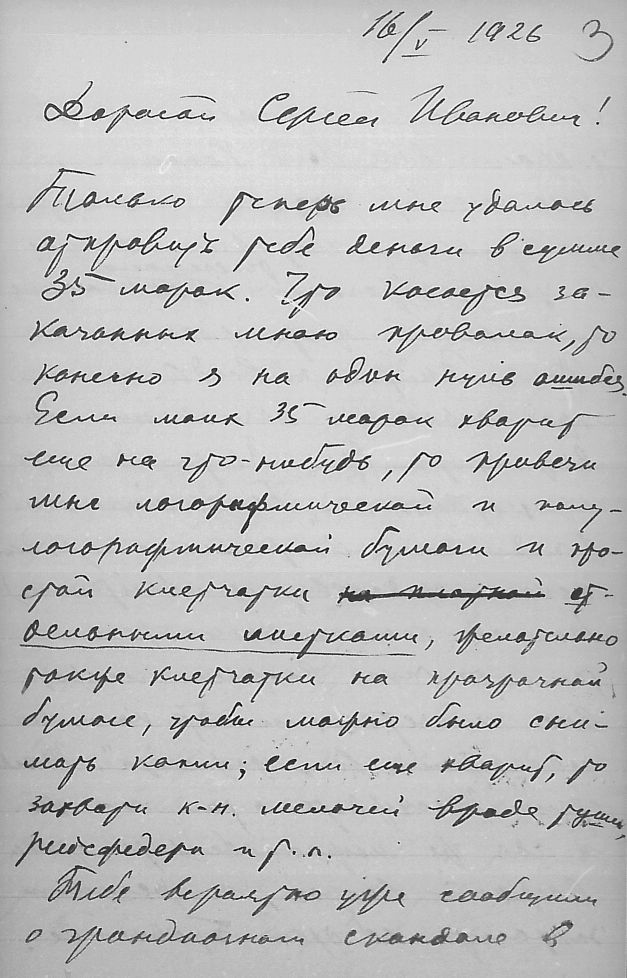 16/V 1926 3
Дорогой Сергей Иванович!
Только теперь мне удалось
отправить тебе деньги в сумме
35 марок. Что касается за-
казанных мною проволок, то
конечно я на один нуль ошибся.
Если моих 35 марок хватит
еще на что-нибудь, то привези
мне логарифмической и полу-
логарифмической бумаги и про-
стой клетчатки на плотной от-
дельными листками, желательно
также клетчатки на прозрачной
бумаге, чтобы можно было сни-
мать копии; если еще хватит, то
захвати к-н. мелочей вроде туши,
рейсфедера и т.п.
Тебе вероятно уже сообщили
о грандиозном скандале в